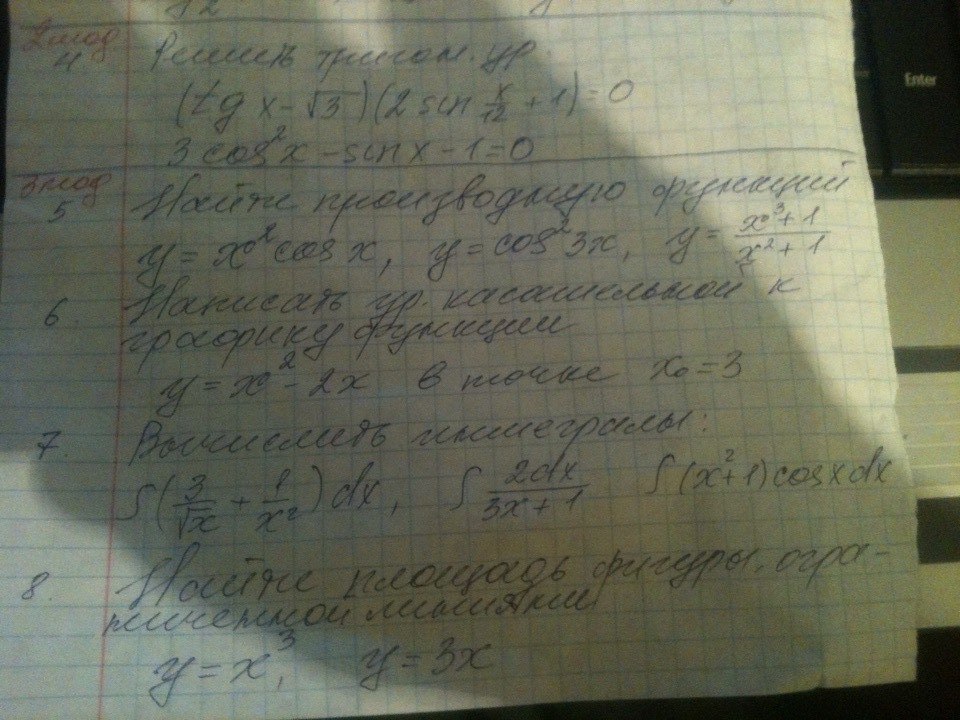 12
2 мод
4 Решить тригон. ур.
(tg x - √3)(2 sin x/12 + 1) = 0
3 cos² x - sin x - 1 = 0
3 мод
5 Найти производную функций
y = x² cos x, y = cos² 3x, y = (x³ + 1)/(x² + 1)
6 Написать ур. касательной к
графику функции
y = x² - 2x в точке x₀ = 3
7. Вычислить интегралы:
∫(3/√x + 1/x²) dx, ∫ 2dx/(3x + 1) ∫(x² + 1) cos x dx
8. Найти площадь фигуры, огра-
ниченной линиями
y = x³, y = 3x
Enter